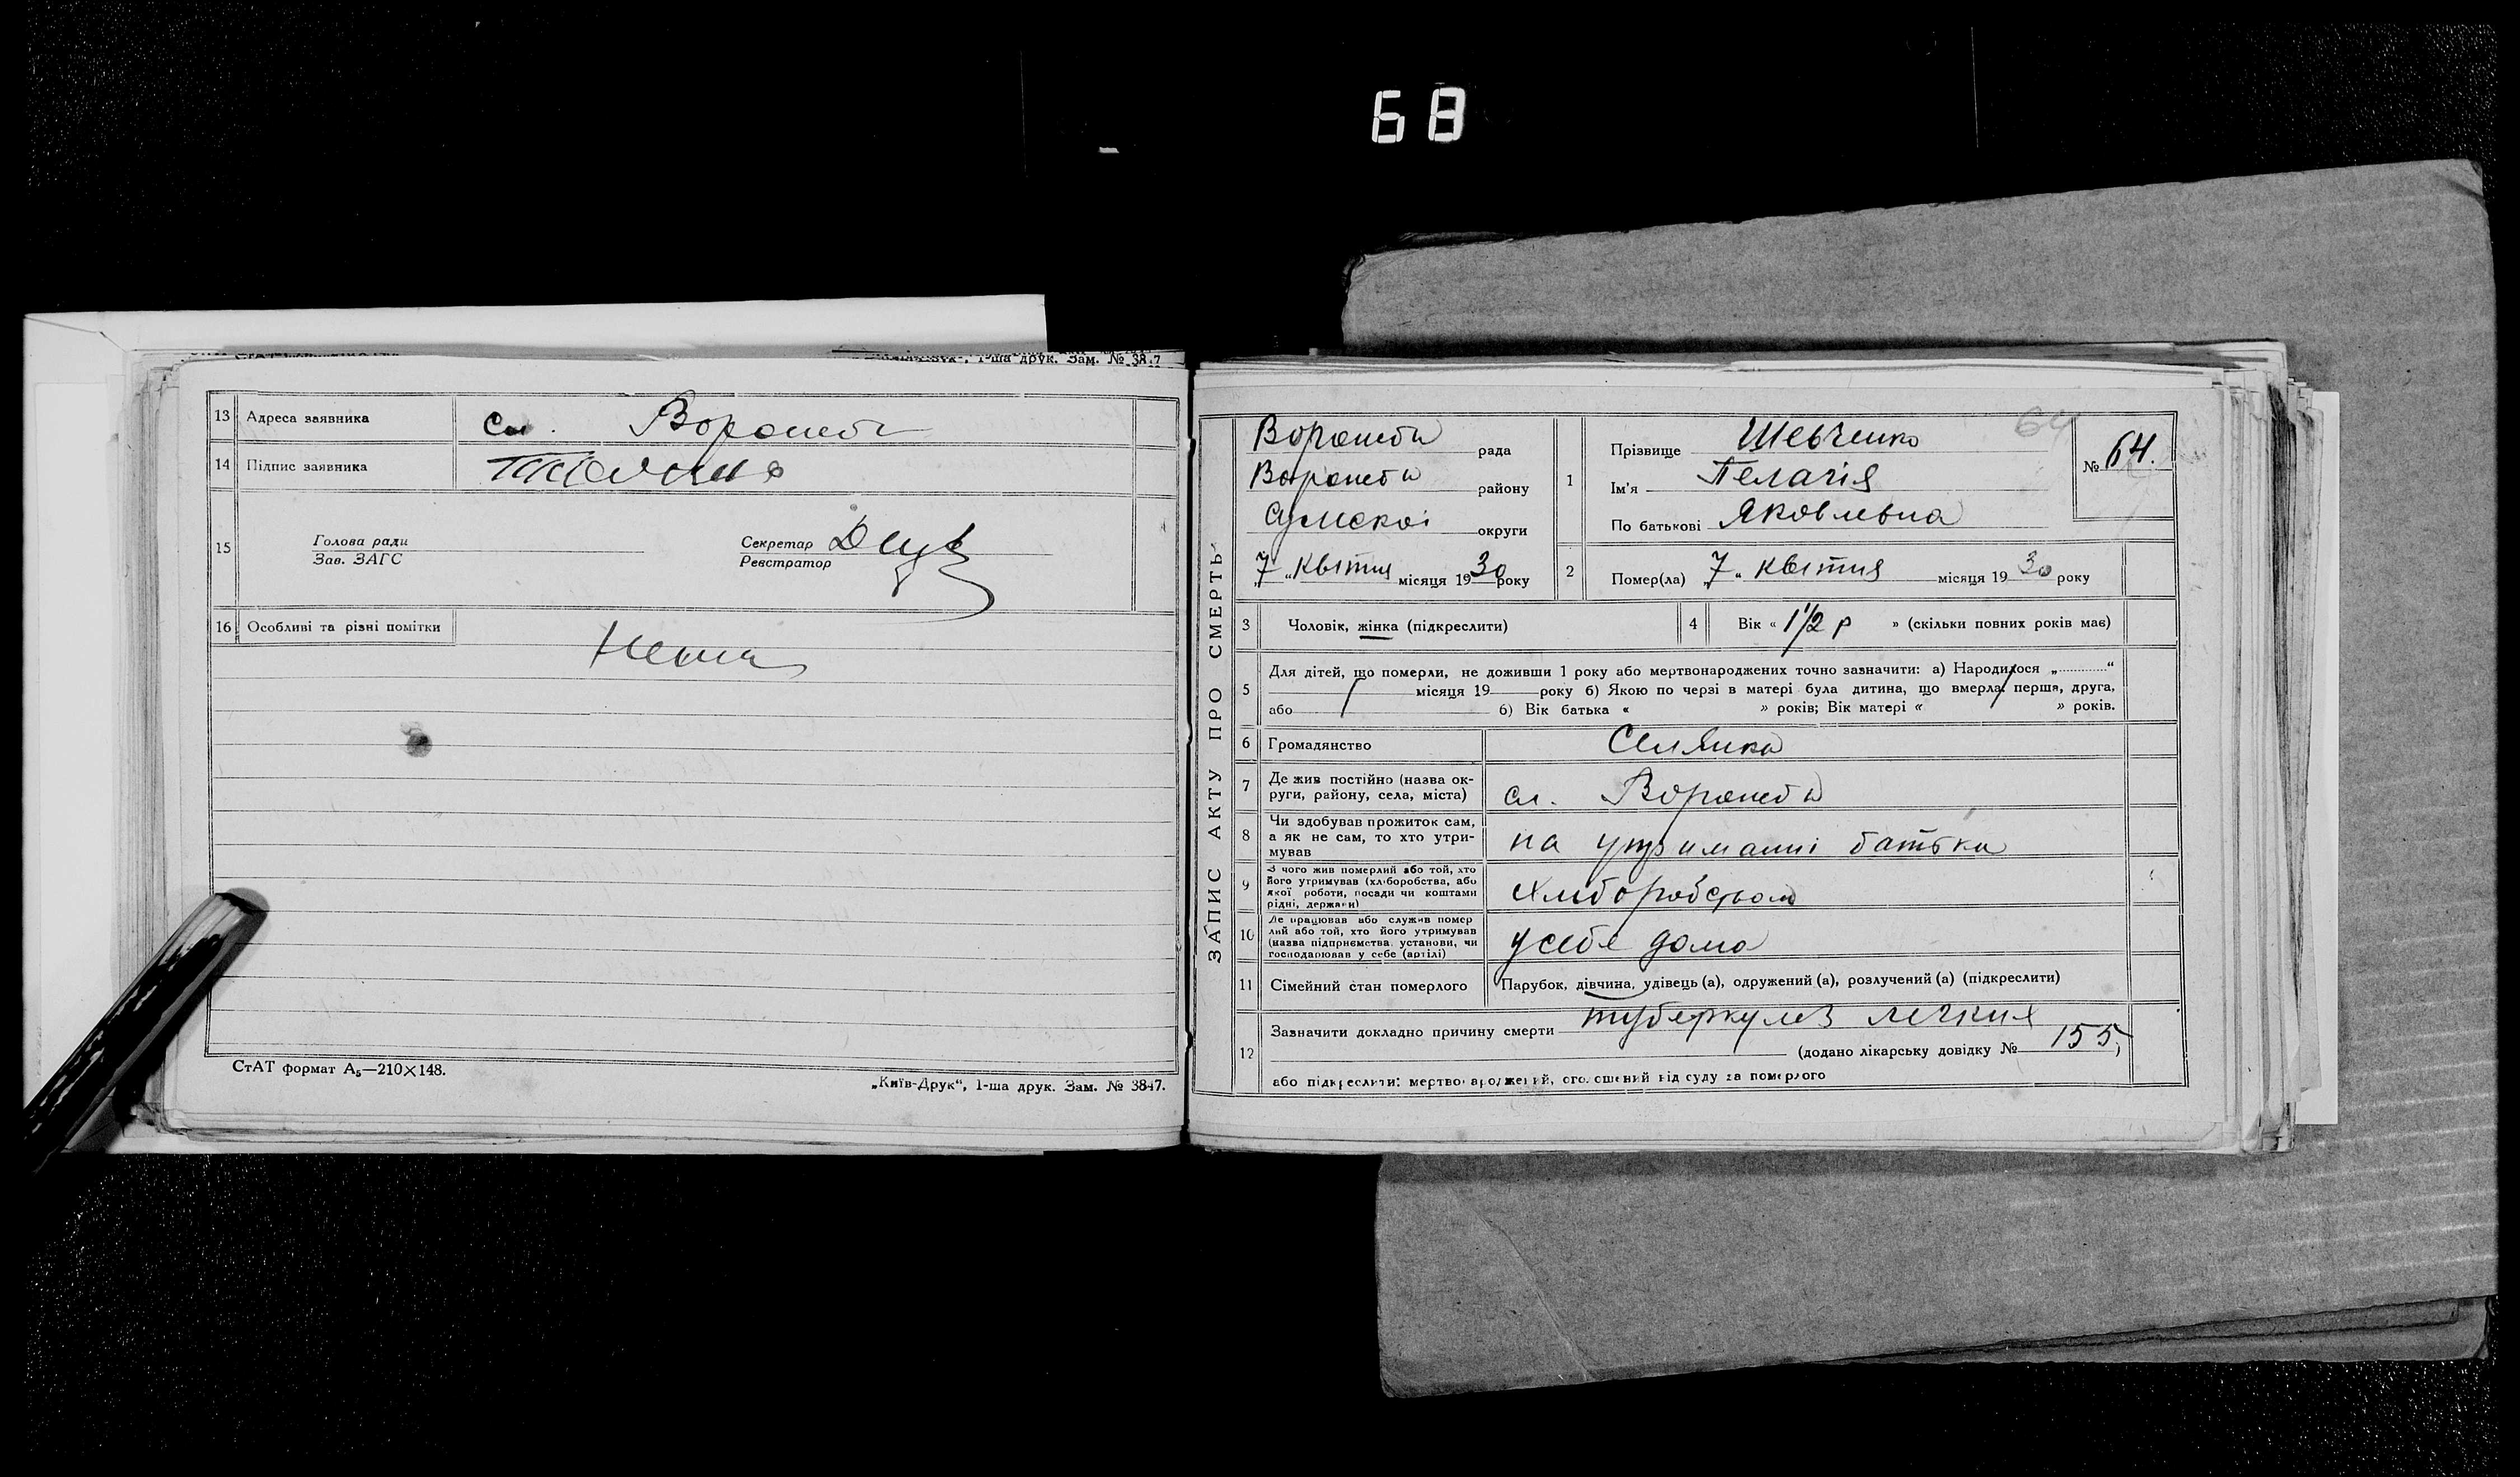 68
1-ша друк. Зам. № 3847
13 Адреса заявника
14 Підпис заявника
15 Голова ради
Зав. ЗАГС
Секретар
Реєстратор
16 Особливі та різні помітки
Нема
СтАТ формат А₅—210×148.
„Київ-Друк“, 1-ша друк. Зам. № 3847.
ЗАПИС АКТУ ПРО СМЕРТЬ
рада
району
Сумскої округи
„7“ квітня місяця 1930 року
64
№ 64.
1 Прізвище Шевченко
Ім'я Пелагія
По батькові Яковлевна
2 Помер(ла) „7“ квітня місяця 1930 року
3 Чоловік, жінка (підкреслити)
4 Вік « 1 1/2 р » (скільки повних років має)
5 Для дітей, що померли, не доживши 1 року або мертвонароджених точно зазначити: а) Народилося „ “
місяця 19 року б) Якою по черзі в матері була дитина, що вмерла: перша, друга,
або б) Вік батька « » років; Вік матері « » років.
6 Громадянство Селянка
7 Де жив постійно (назва ок-
руги, району, села, міста)
сл.
8 Чи здобував прожиток сам,
а як не сам, то хто утри-
мував
на утриманні батька
9 З чого жив померлий або той, хто
його утримував (хліборобства, або
якої роботи, посади чи коштами
рідні, держави)
10 Де працював або служив помер
лий або той, хто його утримував
(назва підприємства, установи, чи
господарював у себе (артілі)
у себе дома
11 Сімейний стан померлого Парубок, дівчина, удівець (а), одружений (а), розлучений (а) (підкреслити)
12 Зазначити докладно причину смерти туберкулез легких
(додано лікарську довідку № 155)
або підкреслити: мертвонароджений, оголошений від суду за померлого